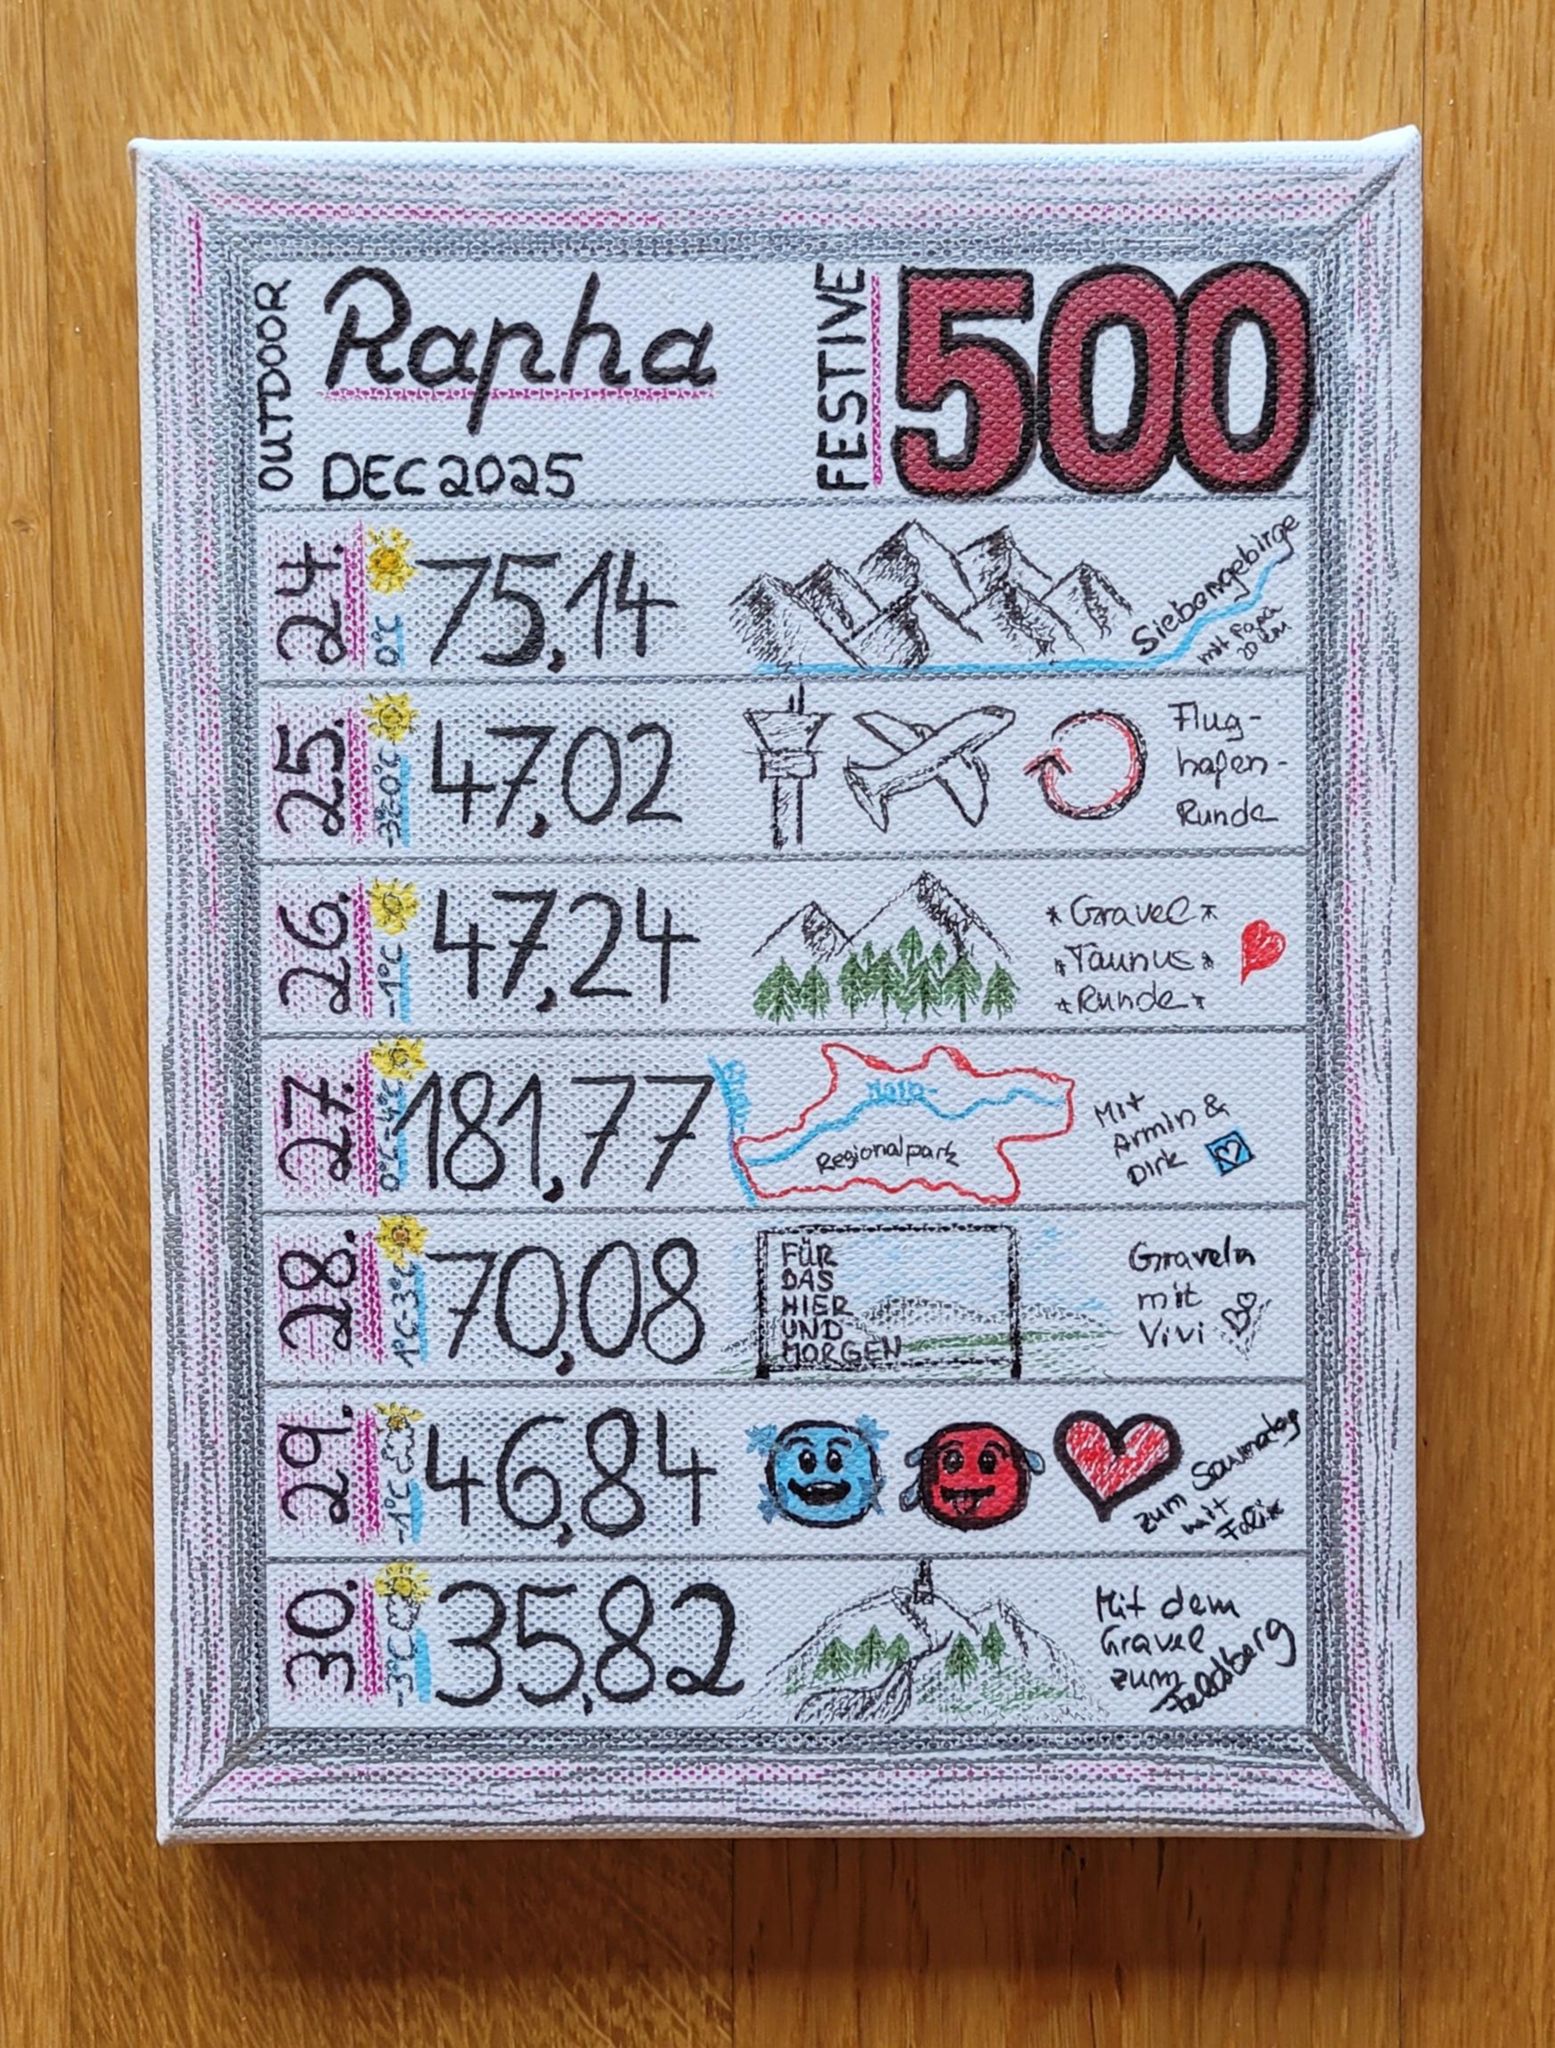 OUTDOOR
Rapha
DEC 2025
FESTIVE
500
24.
0°C
75,14
Siebengebirge
mit Papa
20 km
25.
-3°-0°C
47,02
Flug-
hafen-
Runde
26.
-1°C
47,24
*Gravel*
*Taunus*
*Runde*
27.
0°C-4°C
181,77
Rhein
Main
Regionalpark
Mit
Armin &
Dirk
28.
1°C-3°C
70,08
FÜR
DAS
HIER
UND
MORGEN
Graveln
mit
Vivi
29.
-1°C
46,84
zum Saunatag
mit
Felix
30.
-3°C
35,82
Mit dem
Gravel
zum
Feldberg